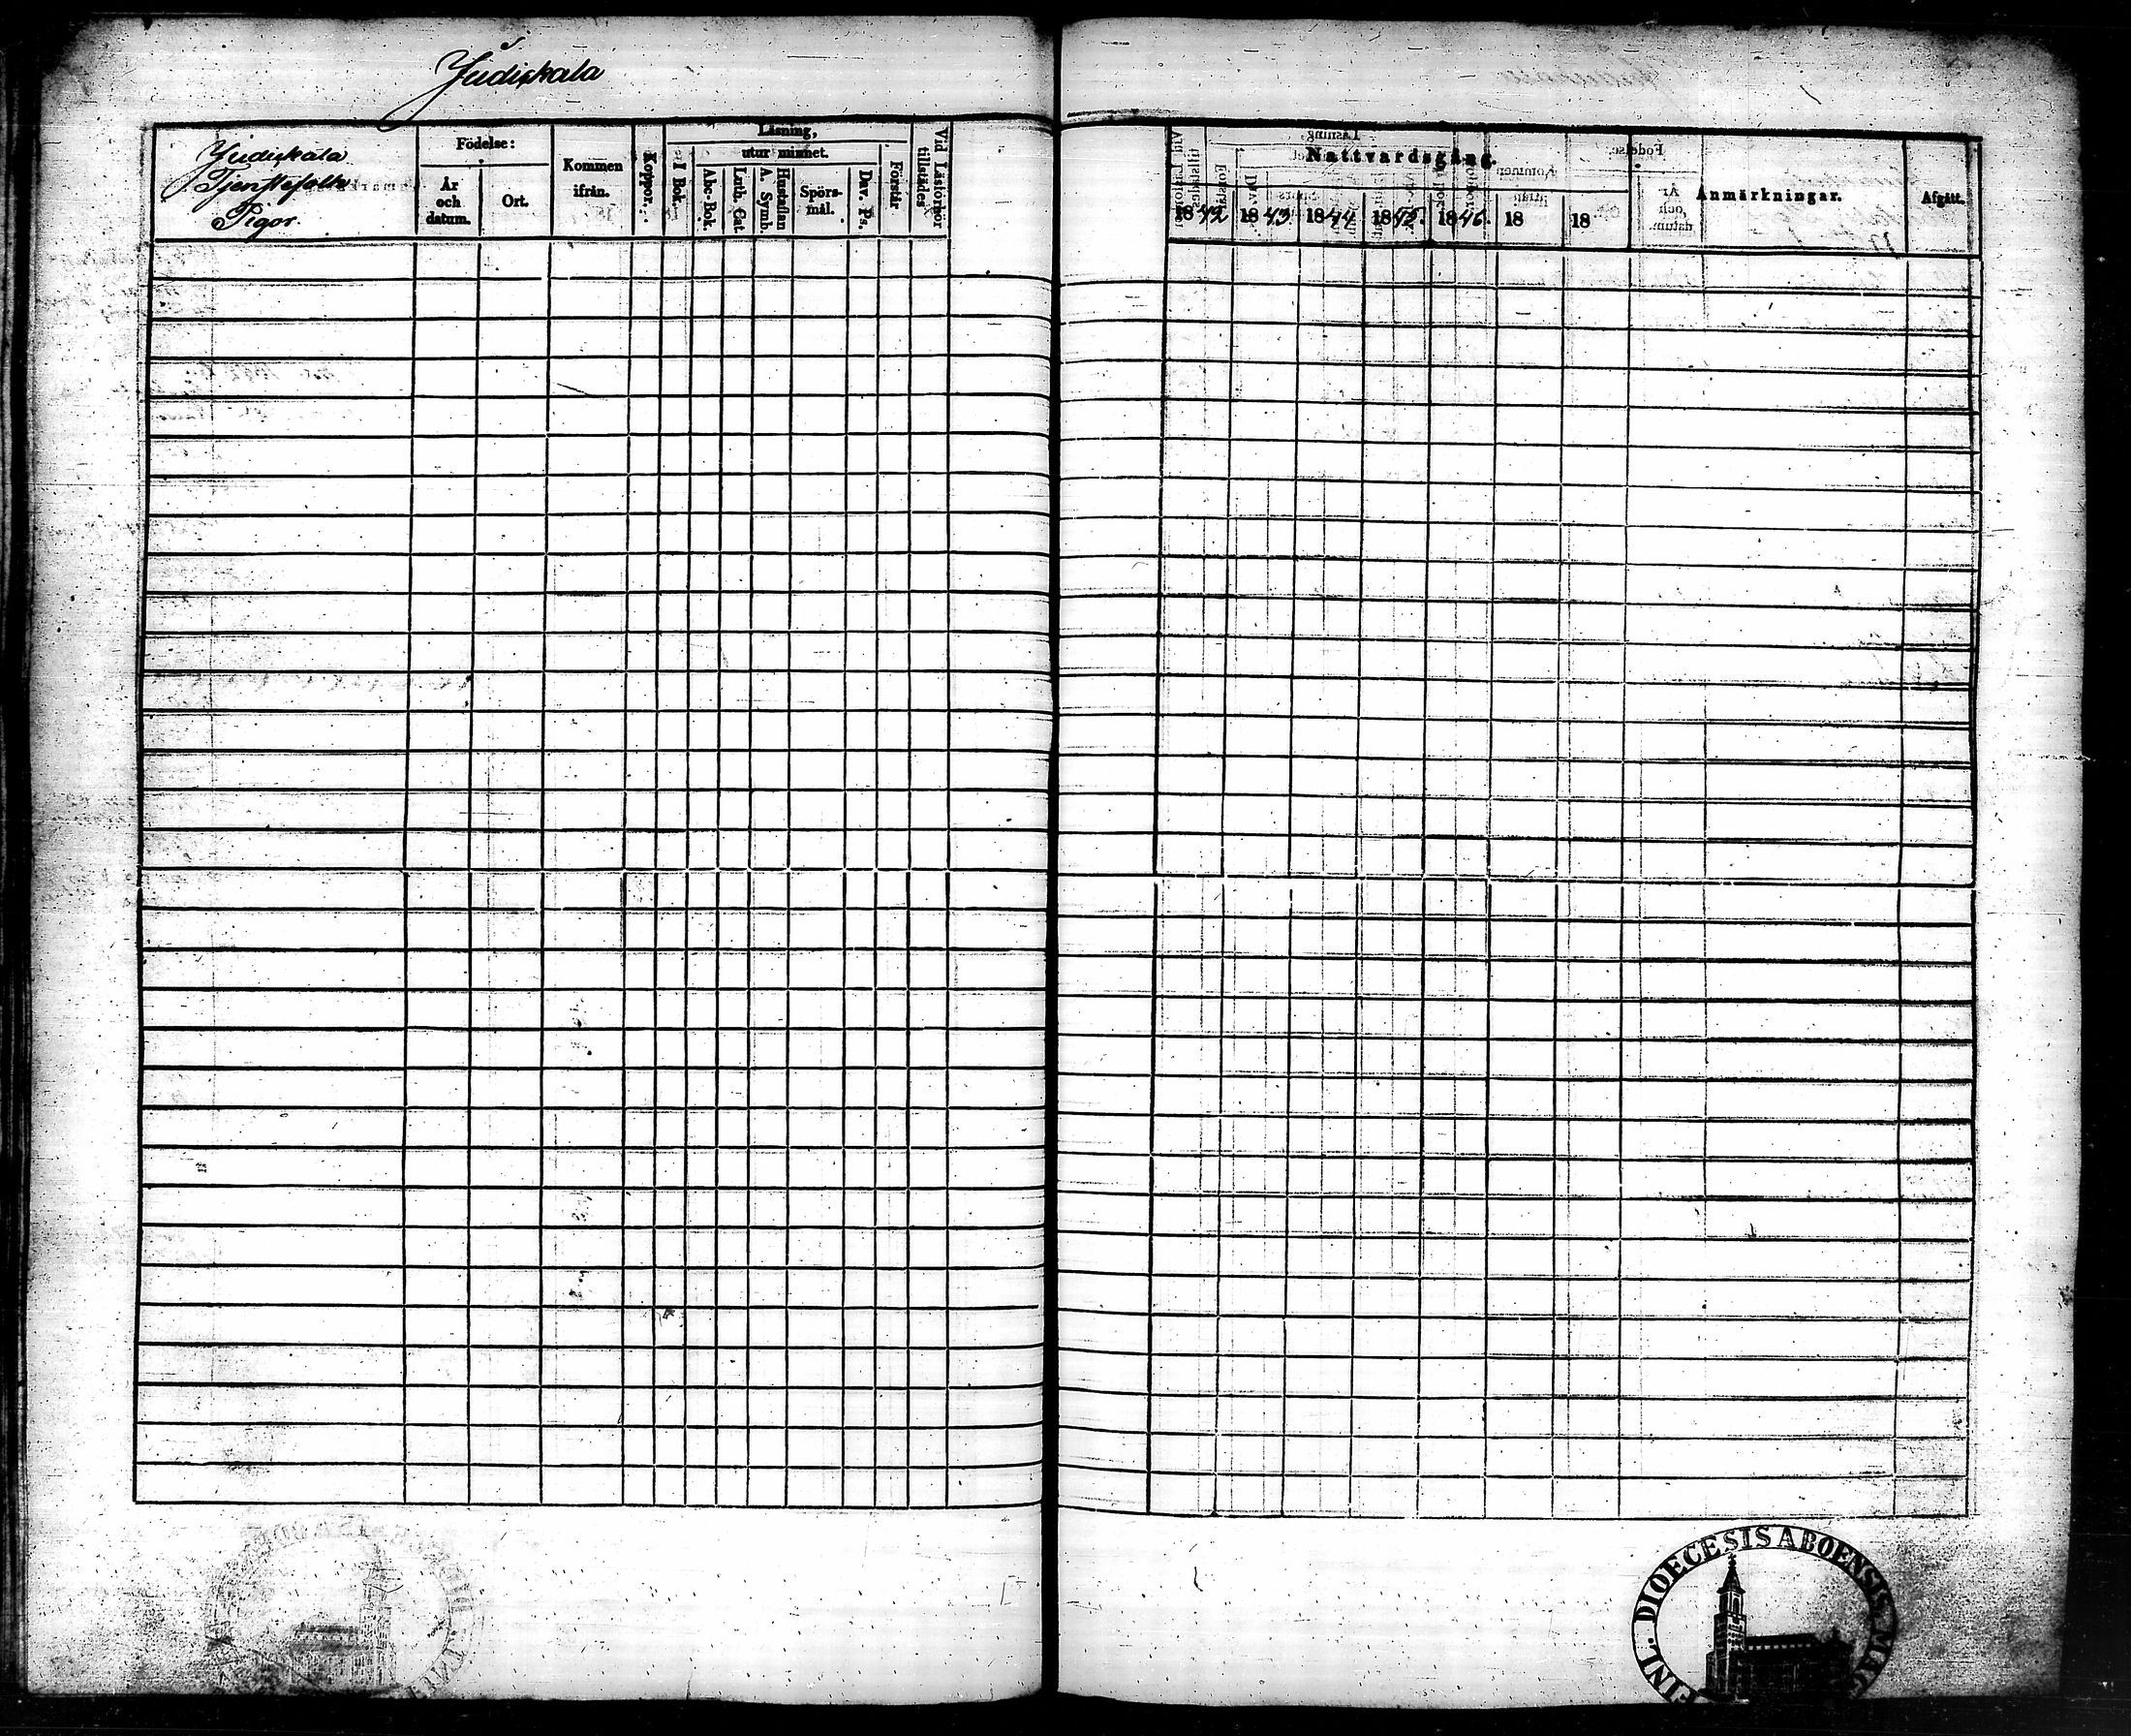 Judikkala
Judikkala
Tjenstefolk
Pigor.
Födelse:
År och datum.
Ort.
Kommen ifrån.
Koppor.
Läsning,
I Bok.
utur minnet.
Abc-Bok.
Luth. Cat.
Hustaflan
A. Symb.
Spörs-
mål.
Dav. Ps.
Förstår.
Vid Läsförhör
tillstädes
Nattvardsgång.
1842
1843
1844
1845.
1846.
18
18
Anmärkningar.
Afgått.
FINL. DIOECESIS ABOENSIS MAG